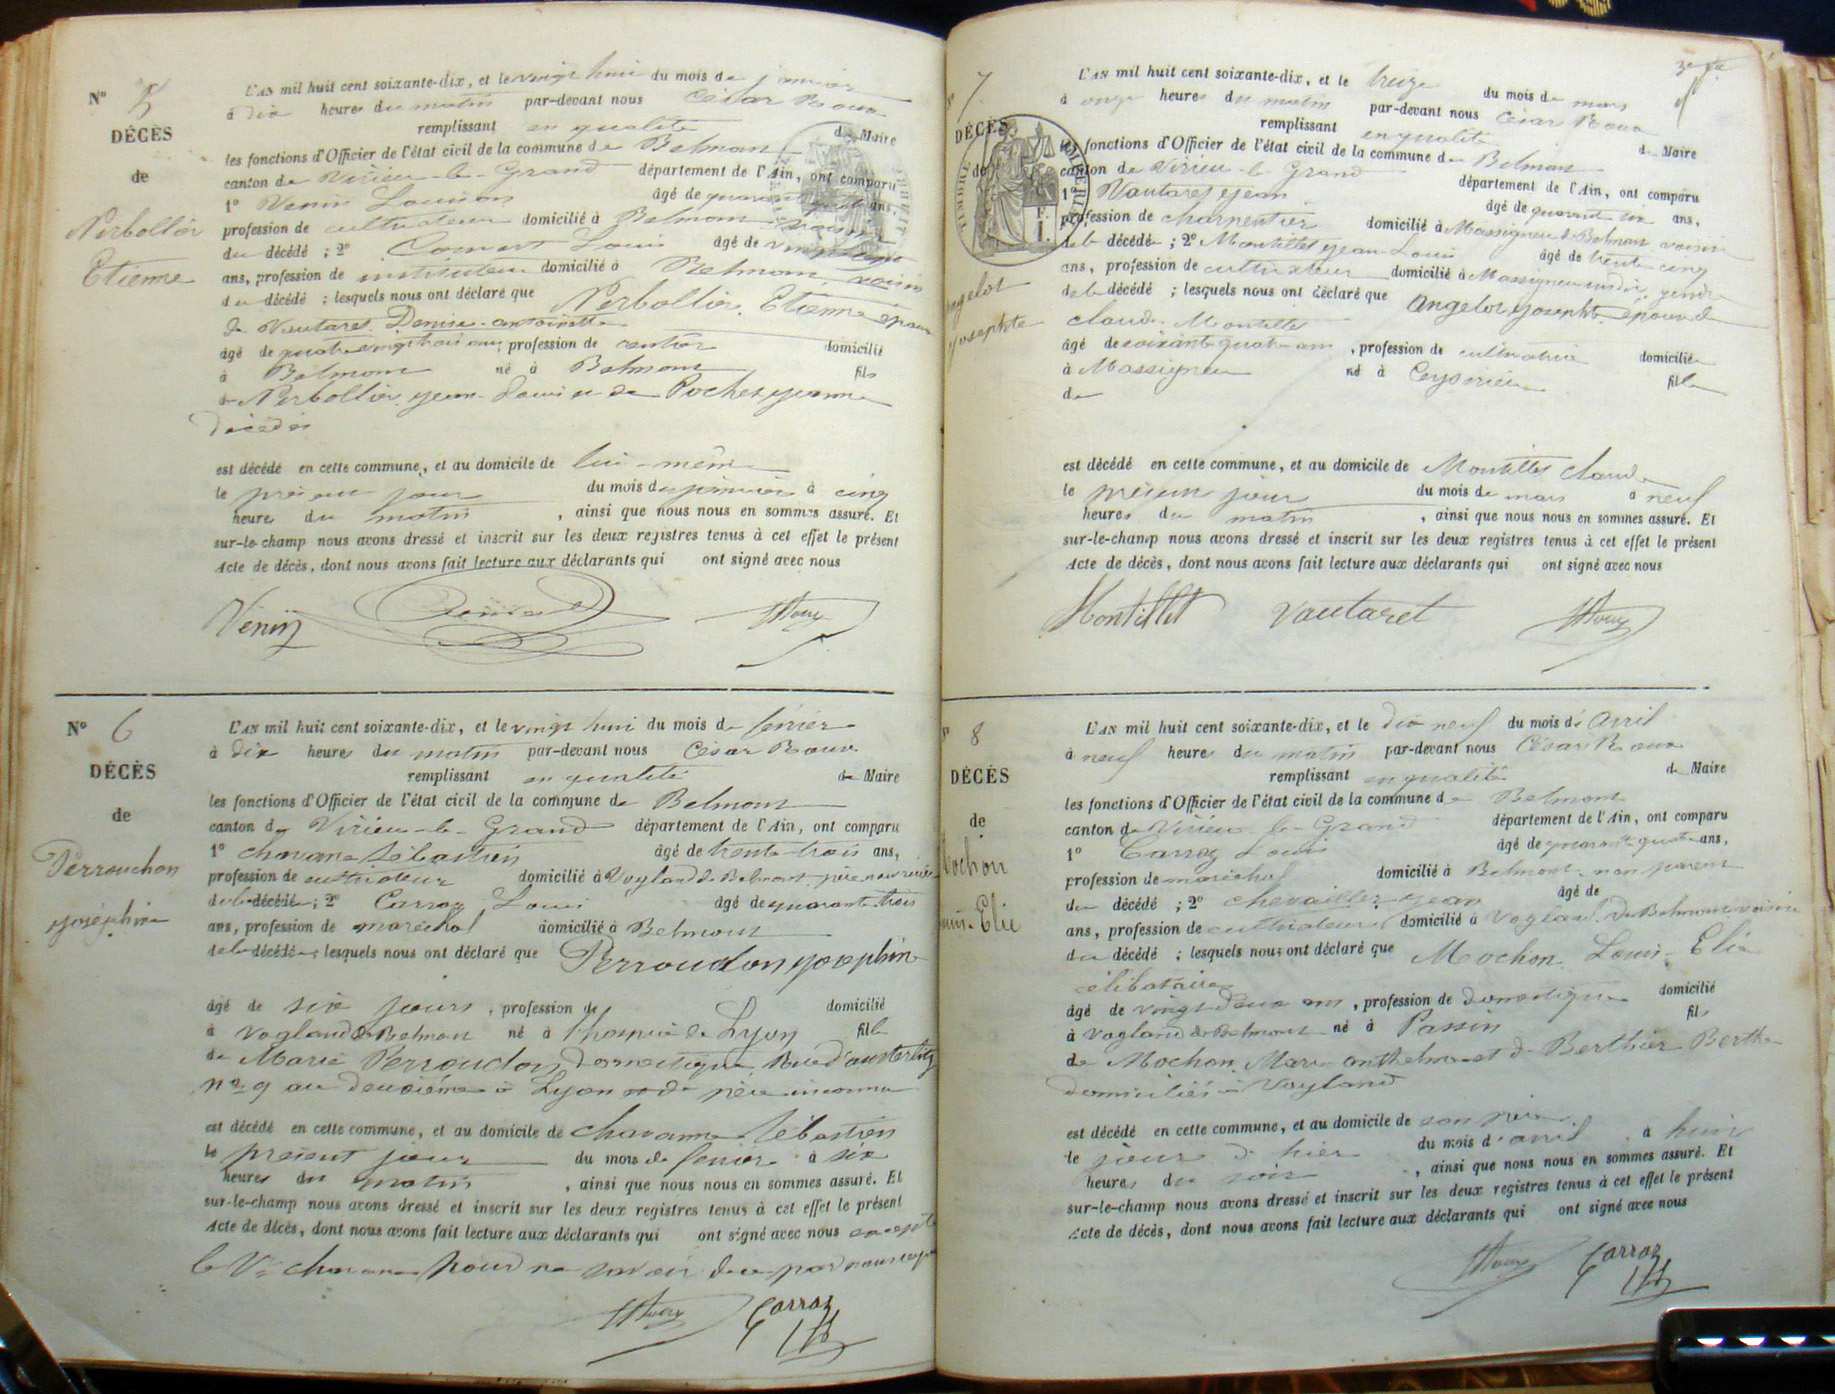 Nº 5
DÉCÈS
de
Nerbollier
Etienne
L'AN mil huit cent soixante-dix, et le vingt huit du mois de janvier
à dix heures du matin par-devant nous César Roux
remplissant en qualité de Maire
les fonctions d'Officier de l'état civil de la commune de Belmont
canton de Virieu-le-Grand département de l'Ain, ont comparu
1º Venin Louison âgé de quarante ans,
profession de cultivateur domicilié à Belmont voisin
du décédé ; 2º Louis âgé de vingt
ans, profession de instituteur domicilié à Belmont, voisin
du décédé ; lesquels nous ont déclaré que Nerbollier, Etienne époux
de Vautaret Denise-antoinette
âgé de quatre vingt trois ans, profession de rentier domicilié
à Belmont né à Belmont fils
de Nerbollier, jean-Louis et de Rochex jeanne
décédés
est décédé en cette commune, et au domicile de lui-même
le présent jour du mois de janvier à cinq
heures du matin , ainsi que nous nous en sommes assuré. Et
sur-le-champ nous avons dressé et inscrit sur les deux registres tenus à cet effet le présent
Acte de décès, dont nous avons fait lecture aux déclarants qui ont signé avec nous
Venin
HRoux
Nº 6
DÉCÈS
de
Perrouchon
joséphine
L'AN mil huit cent soixante-dix, et le vingt huit du mois de février
à dix heures du matin par-devant nous César Roux
remplissant en qualité de Maire
les fonctions d'Officier de l'état civil de la commune de Belmont
canton de Virieu-le-Grand département de l'Ain, ont comparu
1º chavanne Sébastien âgé de trente-trois ans,
profession de cultivateur domicilié à Vogland de Belmont père nourricier
de la décédée ; 2º Carraz Louis âgé de quarante trois
ans, profession de maréchal domicilié à Belmont
de la décédée ; lesquels nous ont déclaré que Perrouchon joséphine
âgé de six jours , profession de domicilié
à Vogland de Belmont né à l'hospice de Lyon fille
de Marie Perrouchon, Domestique Rue d'austerlitz
nº 9 au deuxième à Lyon et de père inconnu
est décédé en cette commune, et au domicile de chavanne Sébastien
le présent jour du mois de février à six
heures du matin , ainsi que nous nous en sommes assuré. Et
sur-le-champ nous avons dressé et inscrit sur les deux registres tenus à cet effet le présent
Acte de décès, dont nous avons fait lecture aux déclarants qui ont signé avec nous excepté
le chavanne pour ne savoir de ce par nous requis
HRoux Carraz
3e
7
DÉCÈS
de
Angelot
josephte
L'AN mil huit cent soixante-dix, et le treize du mois de mars
à onze heures du matin par-devant nous César Roux
remplissant en qualité de Maire
les fonctions d'Officier de l'état civil de la commune de Belmont
canton de Virieu-le-Grand département de l'Ain, ont comparu
1º Vautaret jean âgé de quarante six ans,
profession de charpentier domicilié à Massigneu de Belmont voisin
de la décédée ; 2º Montillet jean Louis âgé de trente cinq
ans, profession de cultivateur domicilié à Massigneu susdit gendre
de la décédé ; lesquels nous ont déclaré que Angelot josephte épouse de
claude Montillet
âgé de soixante quatre ans , profession de cultivatrice domiciliée
à Massigneu né à Ceyzérieu fille
de
est décédé en cette commune, et au domicile de Montillet claude
le présent jour du mois de mars à neuf
heures du matin , ainsi que nous nous en sommes assuré. Et
sur-le-champ nous avons dressé et inscrit sur les deux registres tenus à cet effet le présent
Acte de décès, dont nous avons fait lecture aux déclarants qui ont signé avec nous
Montillet Vautaret HRoux
8
DÉCÈS
de
Mochon
Louis-Elie
L'AN mil huit cent soixante-dix, et le dix neuf du mois d'Avril
à neuf heures du matin par-devant nous César Roux
remplissant en qualité de Maire
les fonctions d'Officier de l'état civil de la commune de Belmont
canton de Virieu-le-Grand département de l'Ain, ont comparu
1º Carraz Louis âgé de quarante quatre ans,
profession de maréchal domicilié à Belmont non parent
du décédé ; 2º chevailler jean âgé de
ans, profession de cultivateur domicilié à Vogland de Belmont voisin
du décédé ; lesquels nous ont déclaré que Mochon Louis-Elie
célibataire
âgé de vingt deux ans , profession de domestique domicilié
à Vogland de Belmont né à Passin fils
de Mochon Marc anthelme et de Berthier Berthe
domiciliés à Vogland
est décédé en cette commune, et au domicile de son père
le jour d'hier du mois d'avril à huit
heures du soir , ainsi que nous nous en sommes assuré. Et
sur-le-champ nous avons dressé et inscrit sur les deux registres tenus à cet effet le présent
Acte de décès, dont nous avons fait lecture aux déclarants qui ont signé avec nous
HRoux Carraz